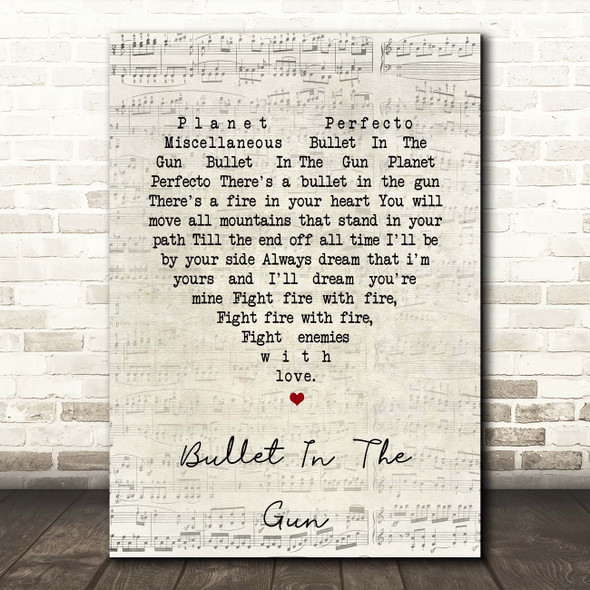 Planet Perfecto
Miscellaneous Bullet In The
Gun Bullet In The Gun Planet
Perfecto There's a bullet in the gun
There's a fire in your heart You will
move all mountains that stand in your
path Till the end off all time I'll be
by your side Always dream that i'm
yours and I'll dream you're
mine Fight fire with fire,
Fight fire with fire,
Fight enemies
with
love.
Bullet In The
Gun